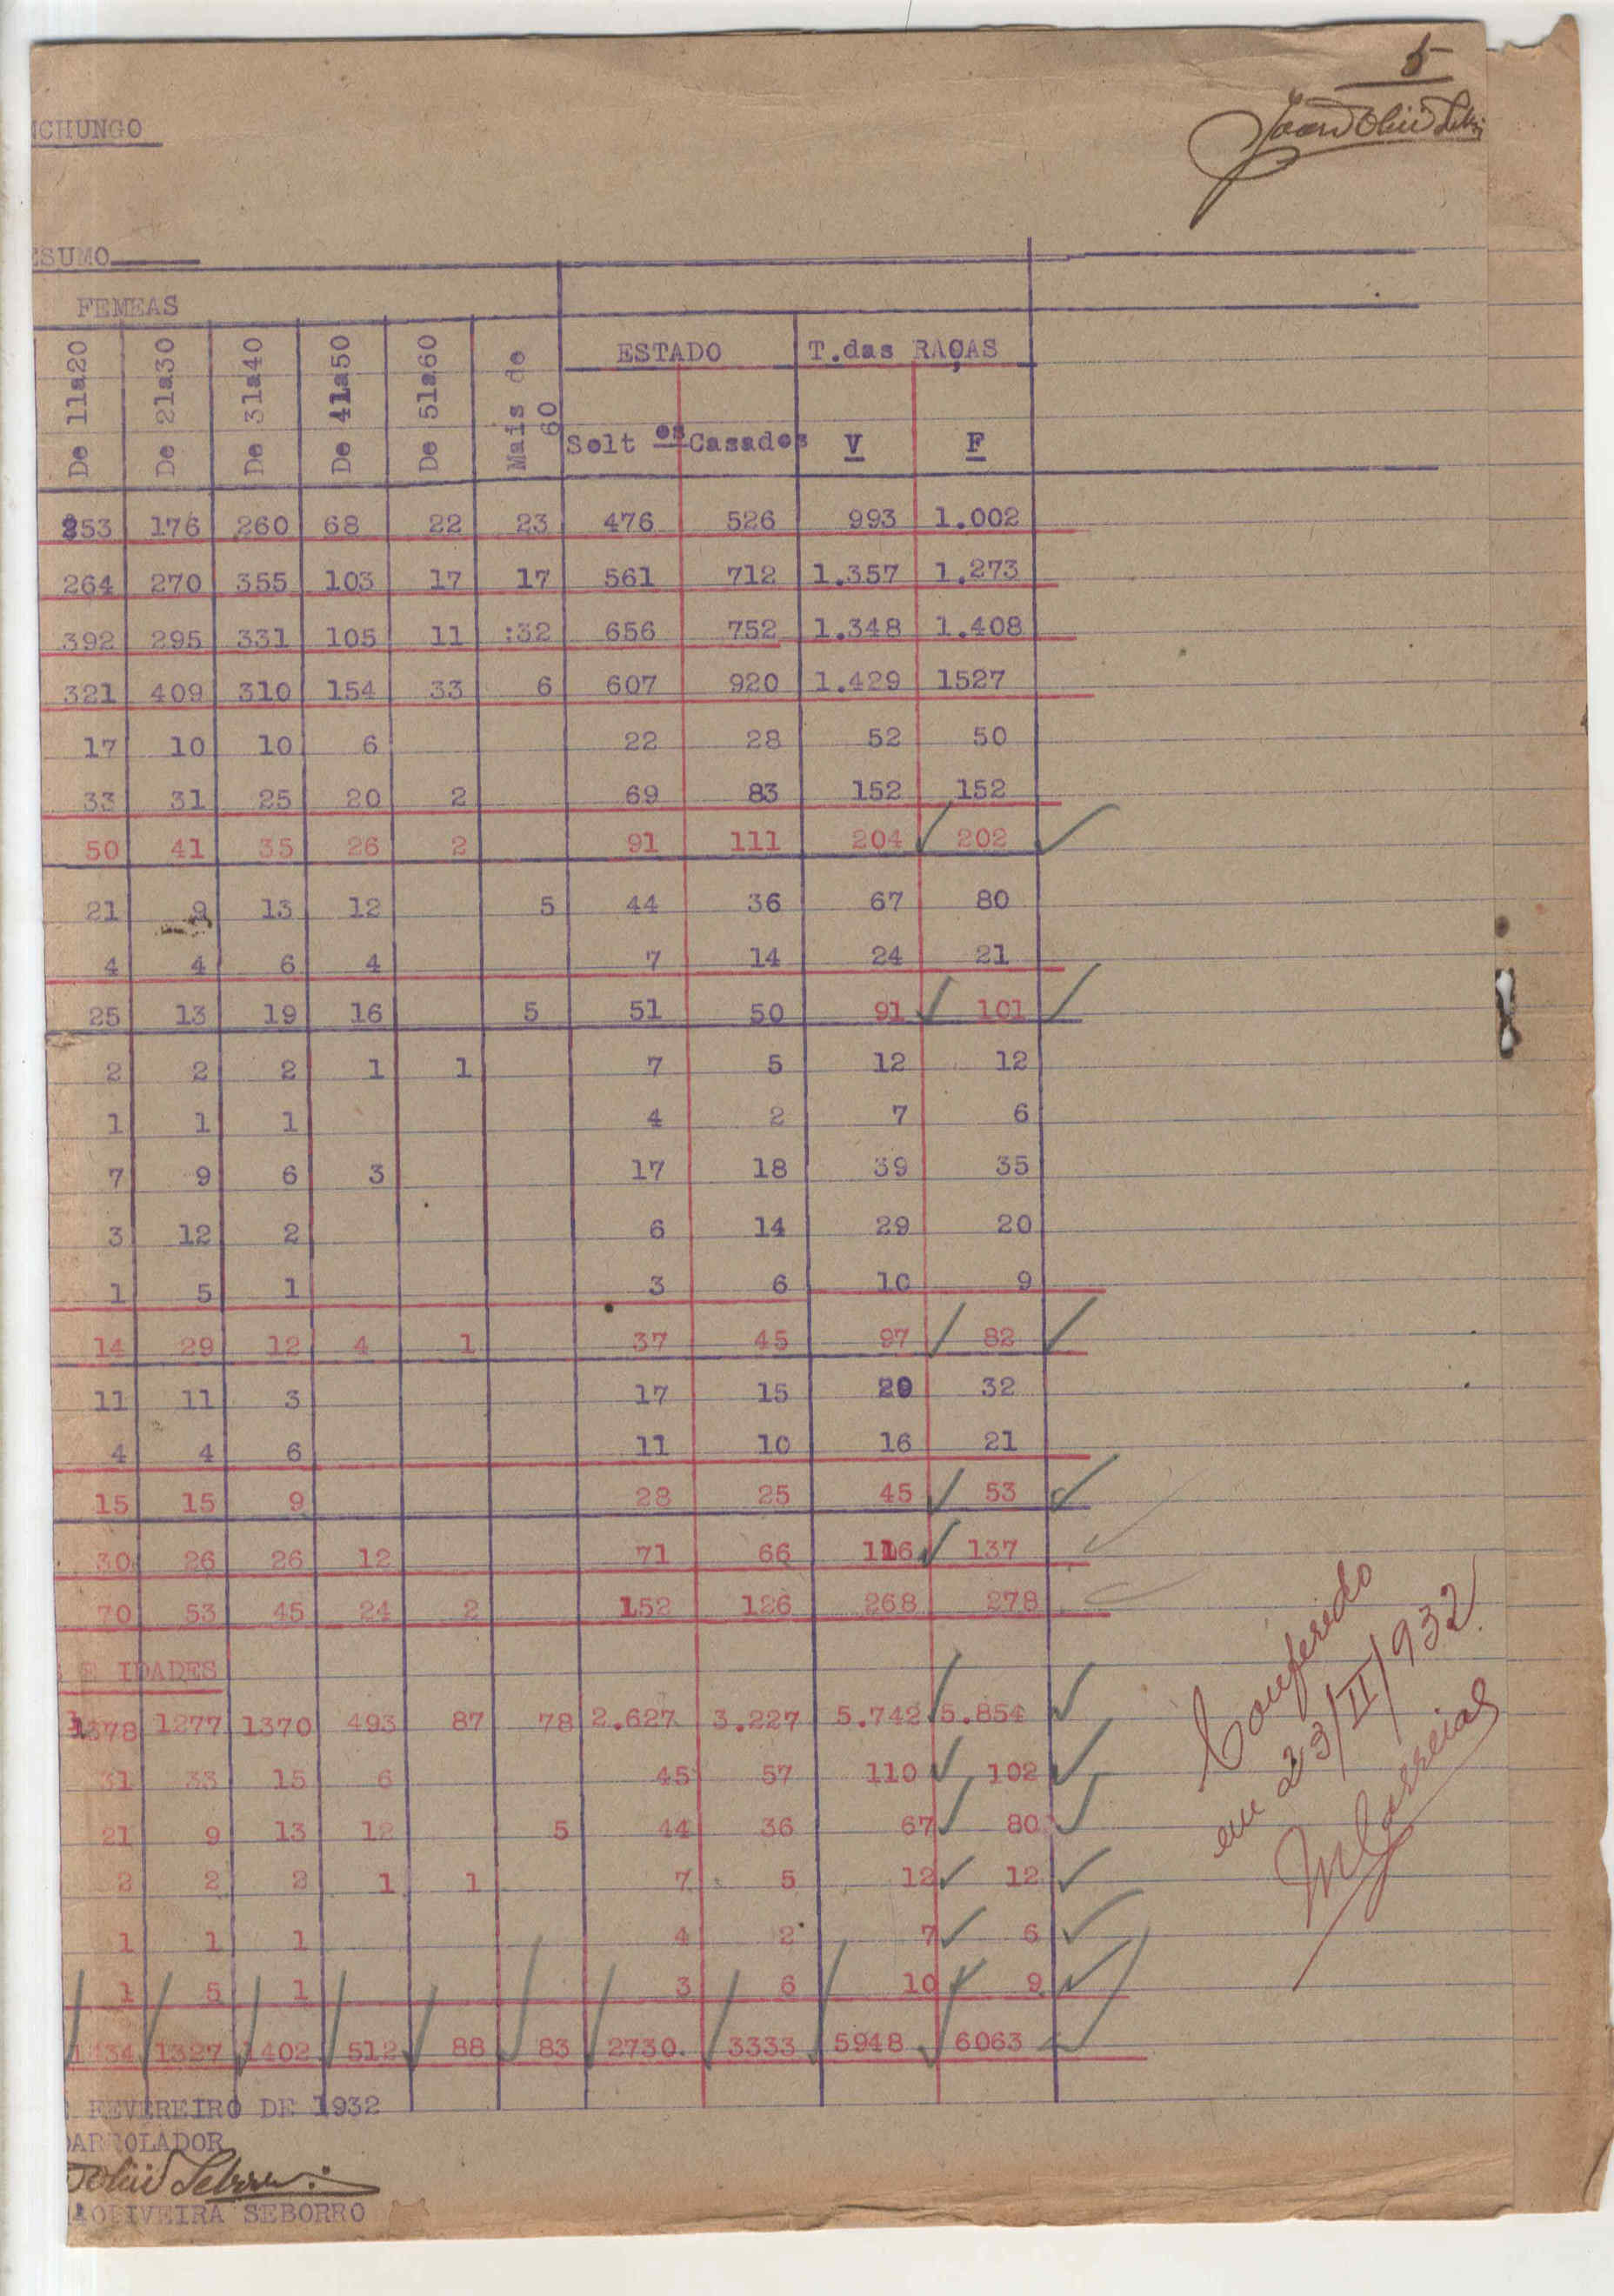 5
CHUNGO
ESUMO
FEMEAS
De 11a20 De 21a30 De 31a40 De 41a50 De 51a60 Mais de 60 ESTADO T.das RAÇAS
Solt os Casados V F
253 176 260 68 22 23 476 526 993 1.002
264 270 355 103 17 17 561 712 1.357 1.273
392 295 331 105 11 :32 656 752 1.348 1.408
321 409 310 154 33 6 607 920 1.429 1527
17 10 10 6 22 28 52 50
33 31 25 20 2 69 83 152 152
50 41 35 26 2 91 111 204 202
21 9 13 12 5 44 36 67 80
4 4 6 4 7 14 24 21
25 13 19 16 5 51 50 91 101
2 2 2 1 1 7 5 12 12
1 1 1 4 2 7 6
7 9 6 3 17 18 39 35
3 12 2 6 14 29 20
1 5 1 3 6 10 9
14 29 12 4 1 37 45 97 82
11 11 3 17 15 29 32
4 4 6 11 10 16 21
15 15 9 28 25 45 53
30 26 26 12 71 66 116 137
70 53 45 24 2 152 126 268 278
E IDADES
1378 1277 1370 493 87 78 2.627 3.227 5.742 5.854
31 33 15 6 45 57 110 102
21 9 13 12 5 44 36 67 80
2 2 2 1 1 7 5 12 12
1 1 1 4 2 7 6
1 5 1 3 6 10 9
1434 1327 1402 512 88 83 2730. 3333 5948 6063
Conferido
em 23/II/932.
FEVEREIRO DE 1932
ARROLADOR
OLIVEIRA SEBORRO